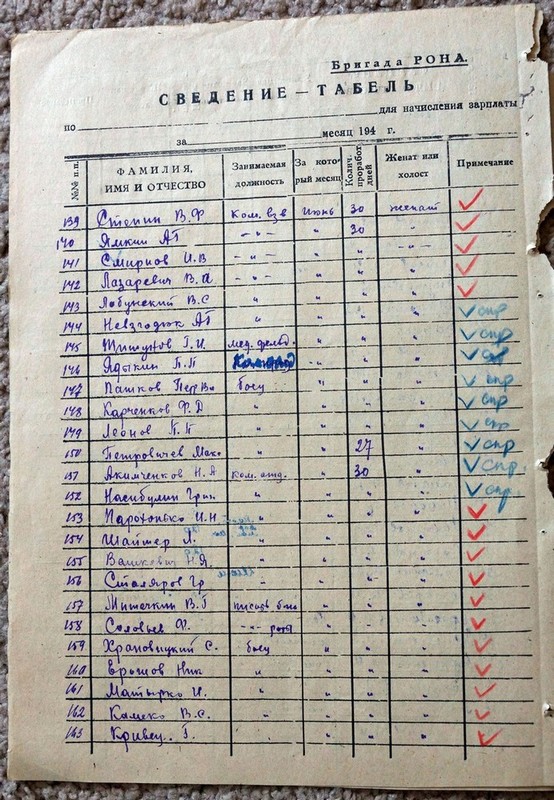 Бригада РОНА.
СВЕДЕНИЕ — ТАБЕЛЬ
по для начисления зарплаты
за месяц 194 г.
№№ п.п. ФАМИЛИЯ, ИМЯ И ОТЧЕСТВО Занимаемая должность За который месяц Колич. проработ дней Женат или холост Примечание
139 Степин В.Ф Ком. взв июнь 30 женат
140 Ямкин АГ -"- " 30 "
141 Смирнов И.В -"- " " -"-
142 Лазаревич В.А -"- " " "
143 Лобунский В.С " " " "
144 Невзгодюк АГ " " " " спр
145 Тишунов Г.И мед. фельд. " " " спр
146 Ядыкин П.П " "
147 Пашков бону " " " спр
148 Карченков Ф.Д " " " " спр
149 Леонов П.П " " " " спр
150 Петровичев Мак. " " 27 " спр
151 Акимченков Н.А ком. отд. " 30 " спр.
152 Насибулин Григ " " " " спр
153 Парохонько И.Н " " " "
154 Шайтер Л. " " " "
155 Вашкович Н.Я. " " "
156 Столяров Гр " " "
157 Митечкин В.Г писарь " " "
158 Соловьев Ф. -"- роты " " "
159 Храновицкий С. бону " " "
160 Ершов Ник " " " "
161 Матырко И. " " " "
162 Камеко В.С. " " " "
163 Кривец. Г. " " " "